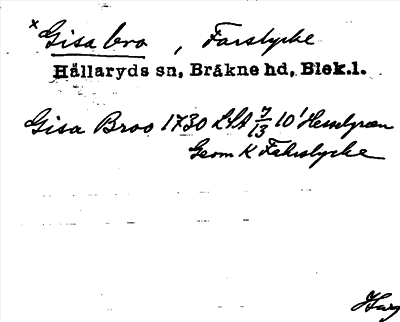 x Gisabro, Farslycke
Hällaryds sn, Bråkne hd, Blek.l.
Gisa Broo 1730 LSA 7/13 10' Hesselgren
Geom K Fahrslycke